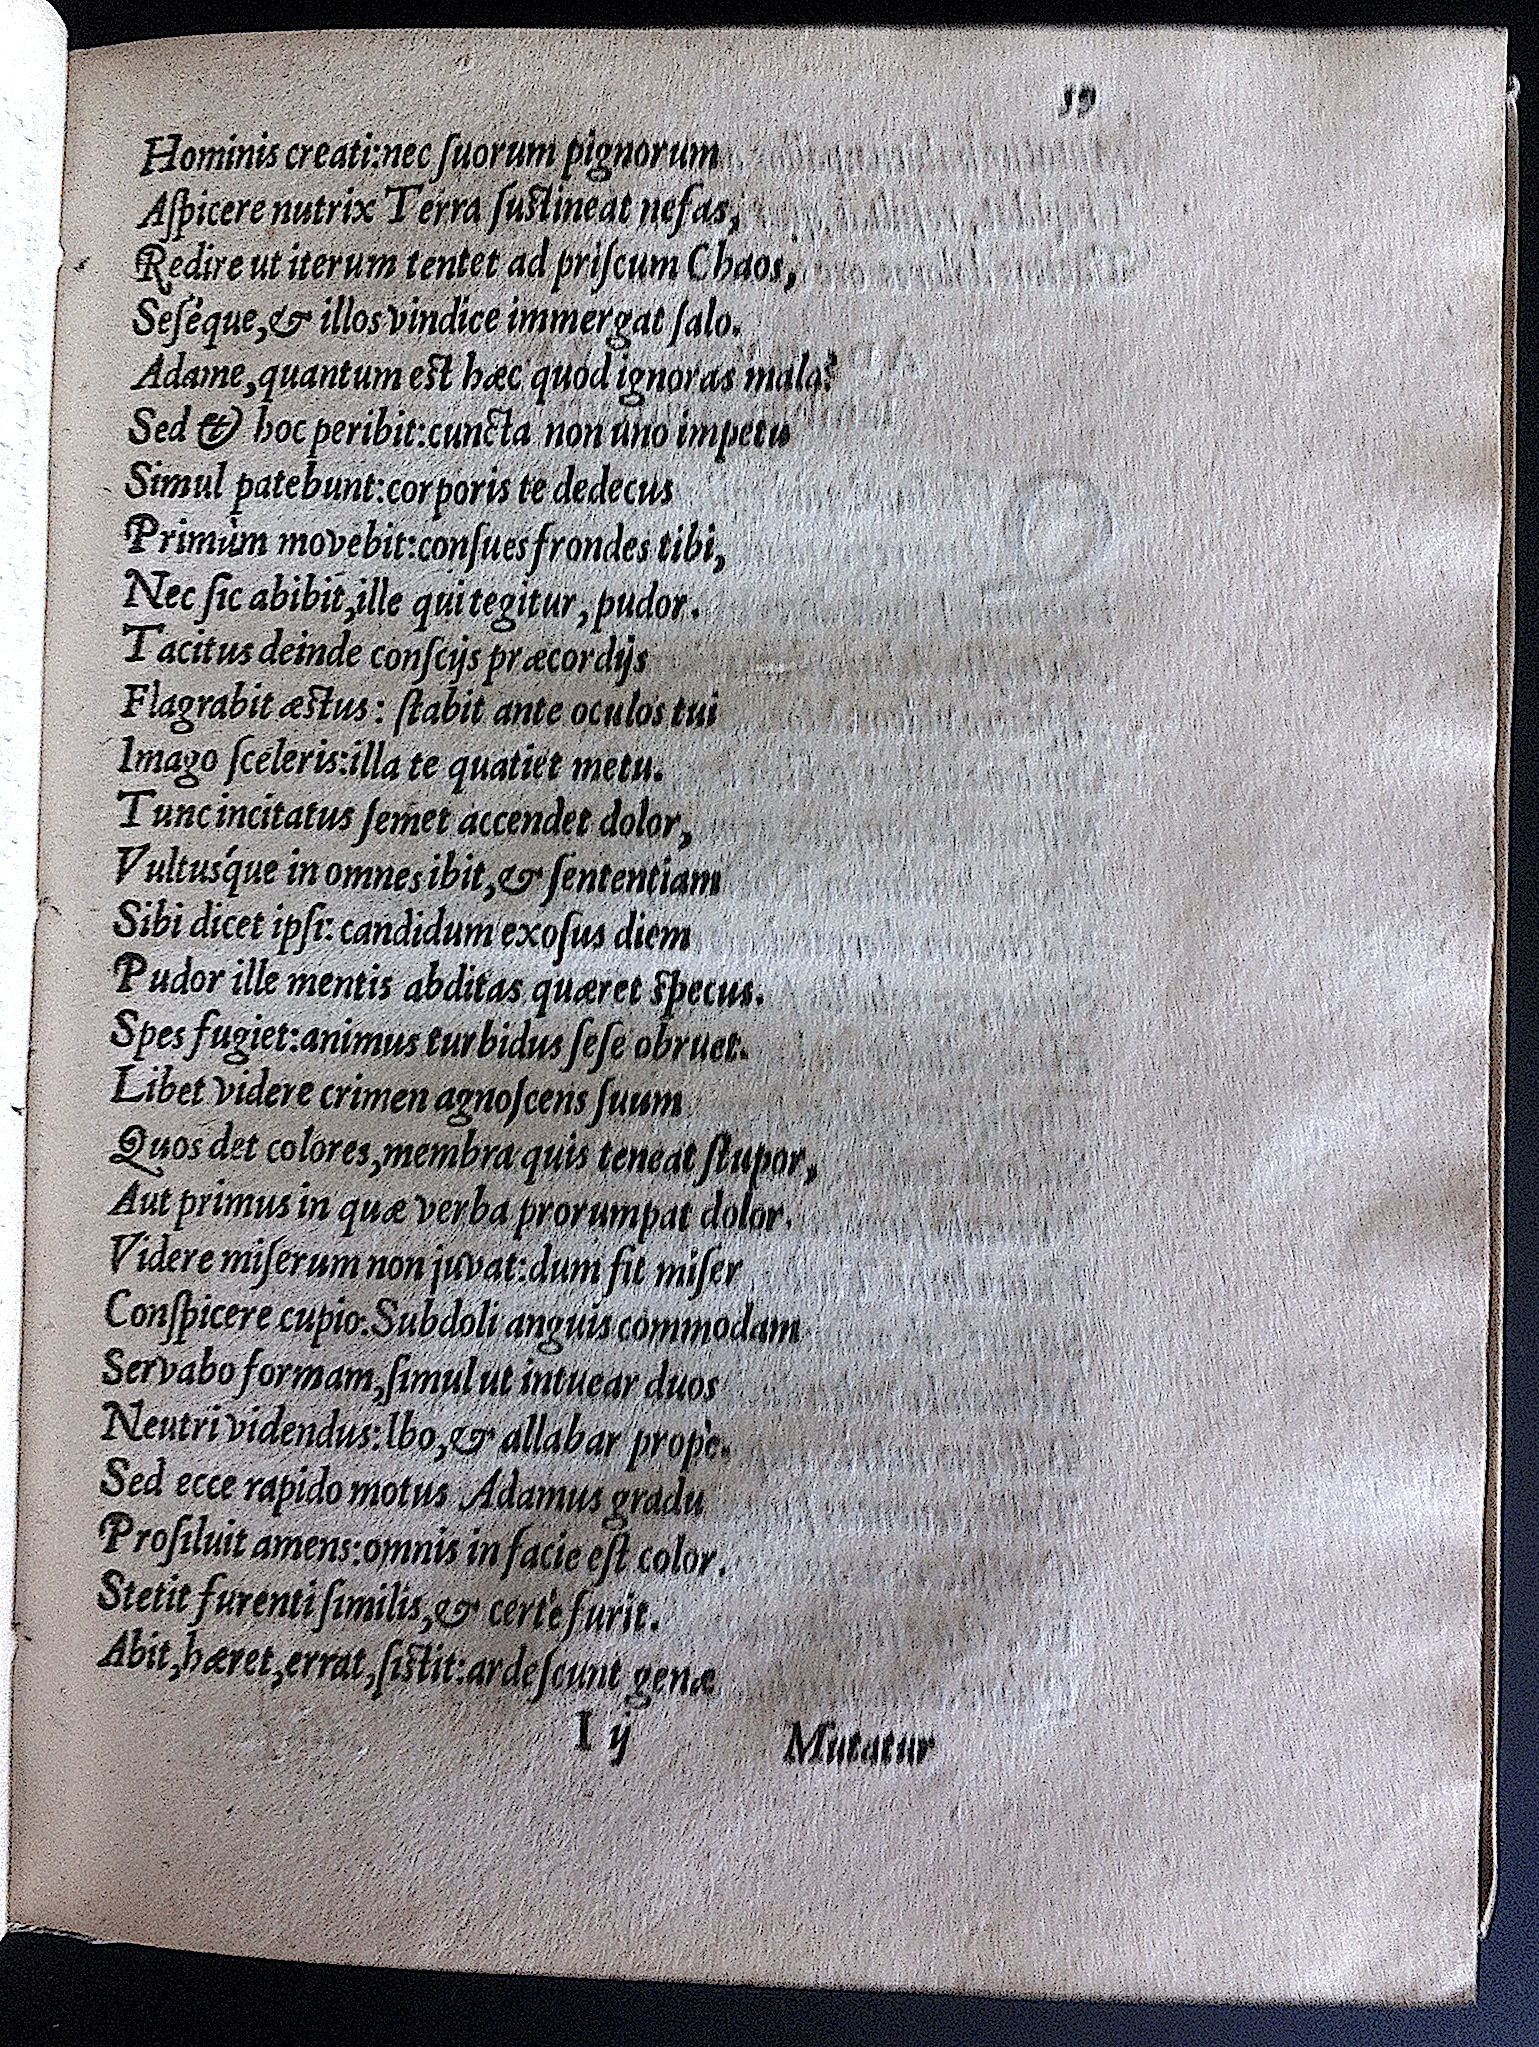 59
Hominis creati:nec ſuorum pignorum
Aſpicere nutrix Terra ſuſtineat nefas,
Redire ut iterum tentet ad priſcum Chaos,
Seſéque,& illos vindice immergat ſalo.
Adame,quantum eſt hæc quod ignoras mala?
Sed & hoc peribit:cuncta non uno impetu
Simul patebunt:corporis te dedecus
Primùm movebit:conſues frondes tibi,
Nec ſic abibit,ille qui tegitur, pudor.
Tacitus deinde conſcijs præcordijs
Flagrabit æſtus: ſtabit ante oculos tui
Imago ſceleris:illa te quatiet metu.
Tunc incitatus ſemet accendet dolor,
Vultuſque in omnes ibit,& ſententiam
Sibi dicet ipſi: candidum exoſus diem
Pudor ille mentis abditas quæret ſpecus.
Spes fugiet:animus turbidus ſeſe obruet.
Libet videre crimen agnoſcens ſuum
Quos det colores,membra quis teneat ſtupor,
Aut primus in quæ verba prorumpat dolor.
Videre miſerum non juvat:dum fit miſer
Conſpicere cupio.Subdoli anguis commodam
Servabo formam,ſimul ut intuear duos
Neutri videndus:Ibo,& allabar propè.
Sed ecce rapido motus Adamus gradu
Proſiluit amens:omnis in facie eſt color.
Stetit furenti ſimilis,& certè furit.
Abit,hæret,errat,ſiſtit:ardeſcunt genæ
I ij Mutatur